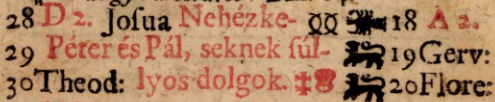 28 D 2. Joſua Nehézke- ♊ ♌ 18 A 2.
29 Péter és Pál, seknek ſúl- ♌ 19 Gerv:
30 Theod: lyos dolgok. ♌ 20 Flore: